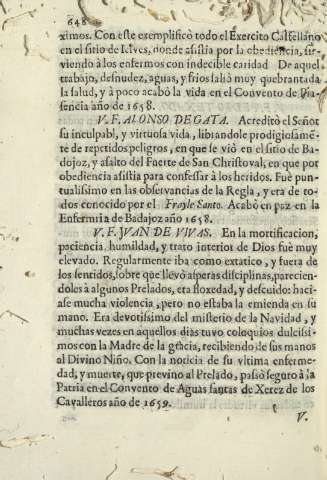 648
ximos. Con este exemplificò todo el Exercito Castellano
en el sitio de Elves, donde asistia por la obediencia, sir-
viendo à los enfermos con indecible caridad De aquel
trabajo, desnudez, aguas, y frios saliò muy quebrantada
la salud, y à poco acabò la vida en el Convento de Pla-
sencia año de 1658.
V. F. ALONSO DE GATA. Acreditò el Señor
su inculpabl, y virtuosa vida, librandole prodigiosāmē-
te de repetidos peligros, en que se viò en el sitio de Ba-
dojoz, y asalto del Fuerte de San Christoval, en que por
obediencia asistia para confesar à los heridos. Fuè pun-
tualisimo en las observancias de la Regla, y era de to-
dos conocido por el Frayle Santo. Acabò en paz en la
Enfermria de Badajoz año 1658.
V. F. JUAN DE VIVAS. En la mortificacion,
paciencia, humildad, y trato interior de Dios fuè muy
elevado. Regularmente iba como extatico, y fuera de
los sentidos, sobre que llevò asperas disciplinas, parecien-
doles à algunos Prelados, era floxedad, y descuido: haci-
ase mucha violencia, pero no estaba la emienda en su
mano. Era devotisimo del misterio de la Navidad, y
muchas vezes en aquellos dias tuvo coloquios dulcisi-
mos con la Madre de la gracia, recibiendo de sus manos
al Divino Niño. Con la noticia de su vltima enferme-
dad, y muerte, que previno al Prelado, pasò seguro à la
Patria en el Convento de Aguas santas de Xerez de los
Cavalleros año de 1659.
V.